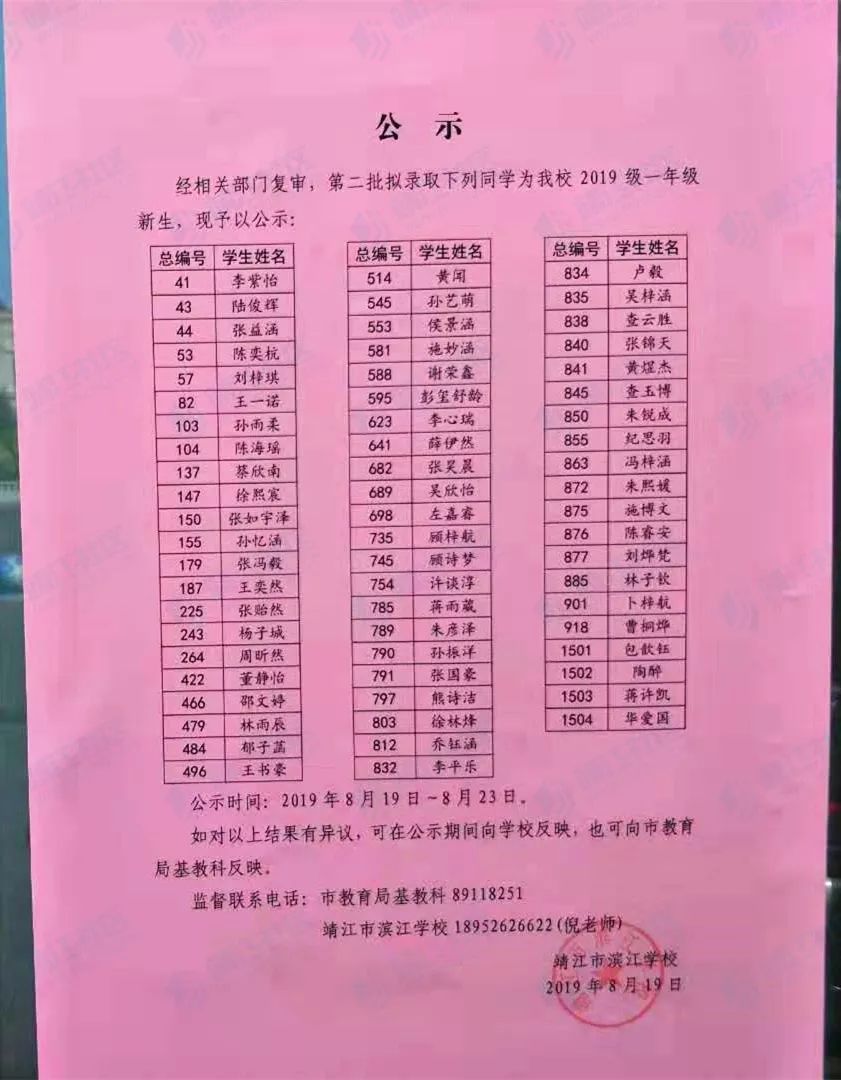 公 示
经相关部门复审，第二批拟录取下列同学为我校 2019 级一年级
新生，现予以公示：
总编号 学生姓名
41 李紫怡
43 陆俊辉
44 张益涵
53 陈奕杭
57 刘梓琪
82 王一诺
103 孙雨柔
104 陈海瑶
137 蔡欣南
147 徐熙宸
150 张如宇泽
155 孙忆涵
179 张冯毅
187 王奕然
225 张贻然
243 杨子城
264 周昕然
422 董静怡
466 邵文婷
479 林雨辰
484 郁子菡
496 王书豪
总编号 学生姓名
514 黄闻
545 孙艺萌
553 侯景涵
581 施妙涵
588 谢荣鑫
595 彭玺舒龄
623 李心瑞
641 薛伊然
682 张昊晨
689 吴欣怡
698 左嘉睿
735 顾梓航
745 顾诗梦
754 许谈淳
785 蒋雨葳
789 朱彦泽
790 孙振洋
791 张国豪
797 熊诗洁
803 徐林烽
812 乔钰涵
832 李平乐
总编号 学生姓名
834 卢毅
835 吴梓涵
838 查云胜
840 张锦天
841 黄煜杰
845 查玉博
850 朱锐成
855 纪思羽
863 冯梓涵
872 朱熙媛
875 施博文
876 陈睿安
877 刘烨梵
885 林子钦
901 卜梓航
918 曹桐烨
1501 包歆钰
1502 陶醉
1503 蒋许凯
1504 华爱国
公示时间：2019 年 8 月 19 日～8 月 23 日。
如对以上结果有异议，可在公示期间向学校反映，也可向市教育
局基教科反映。
监督联系电话：市教育局基教科 89118251
靖江市滨江学校 18952626622（倪老师）
靖江市滨江学校
2019 年 8 月 19 日